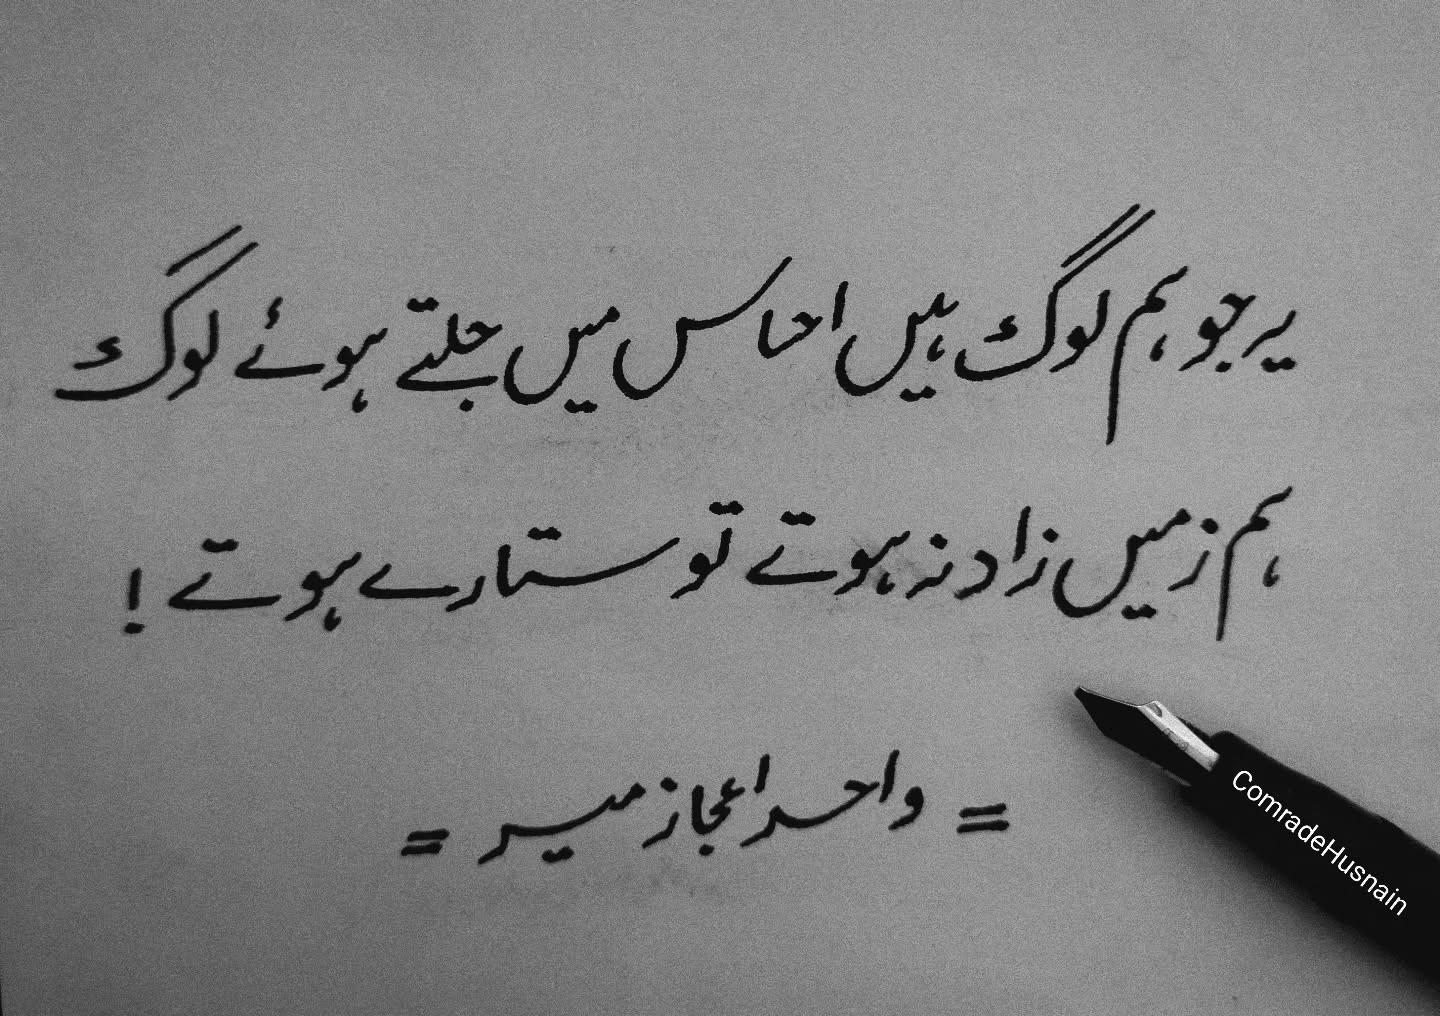 یہ جو ہم لوگ ہیں احساس میں جلتے ہوئے لوگ
ہم زمیں زاد نہ ہوتے تو ستارے ہوتے !
= واحد اعجاز میر =
ComradeHusnain